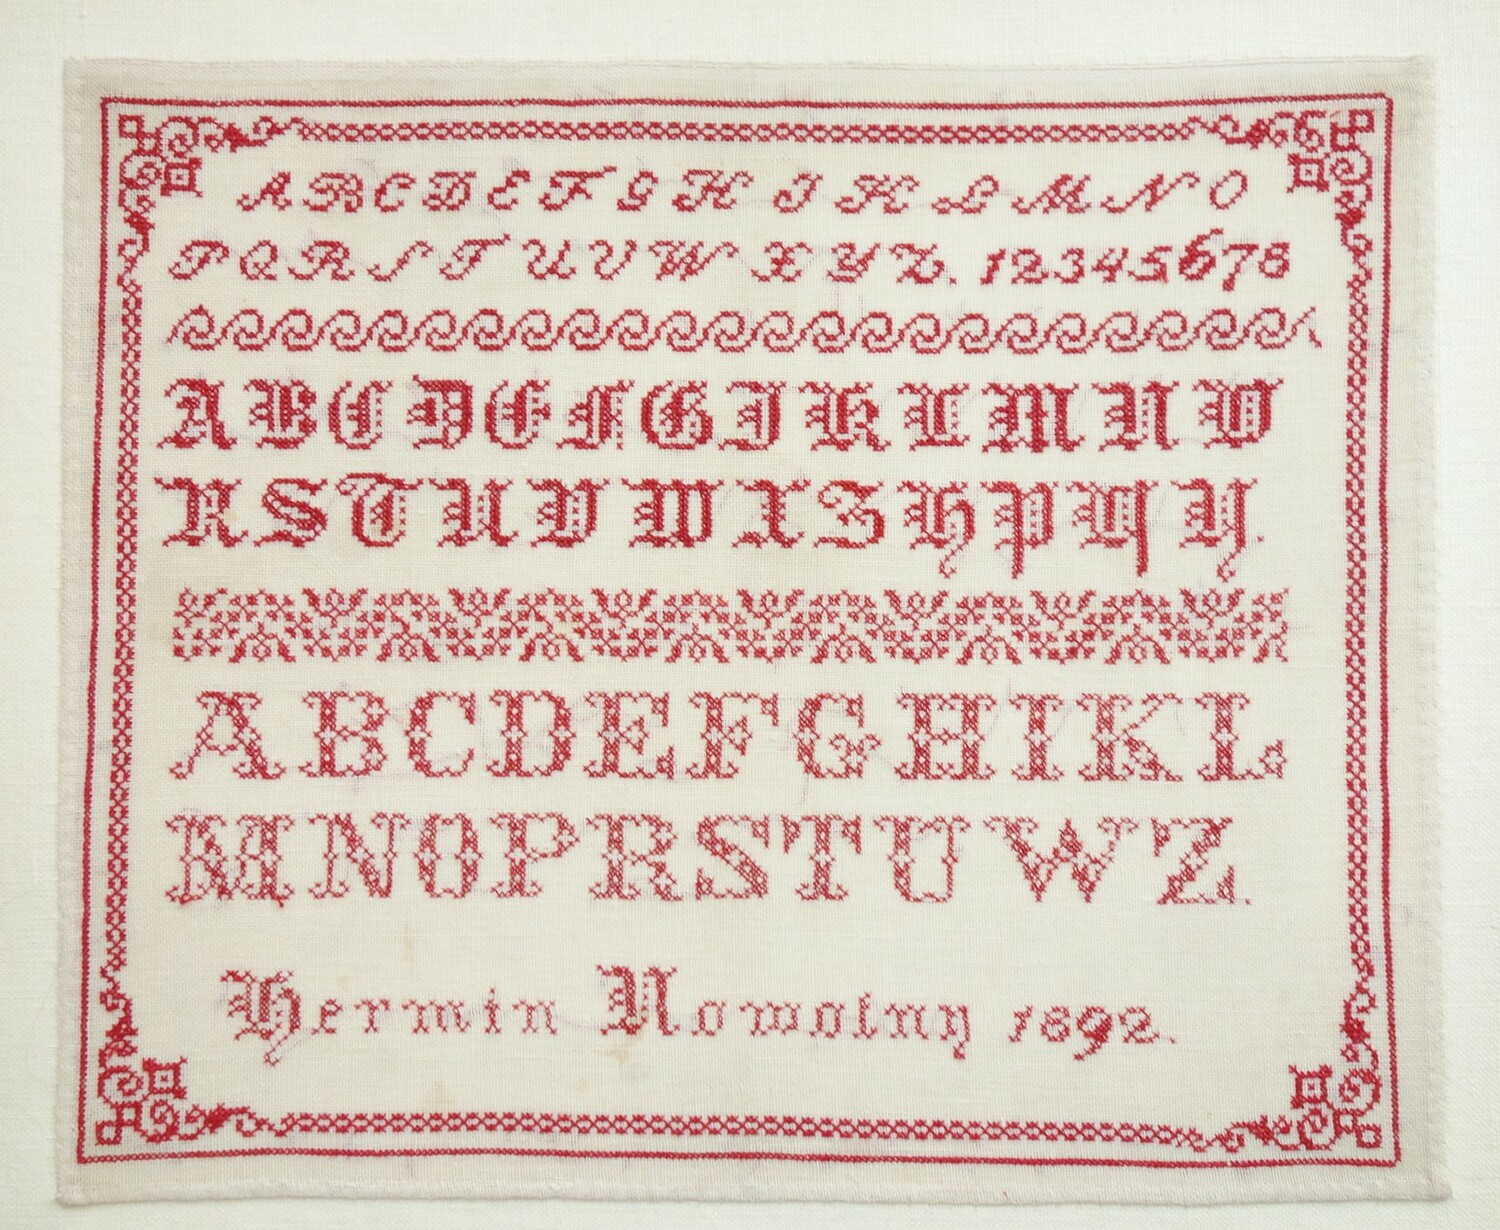 A B C D E F G H I K L M N O
P Q R S T U V W X Y Z. 12345678
A B C D E F G I K L M N O
R S T U V W X Z H P Q Y.
A B C D E F G H I K L
M N O P R S T U W Z.
Hermin Nowotny 1892.